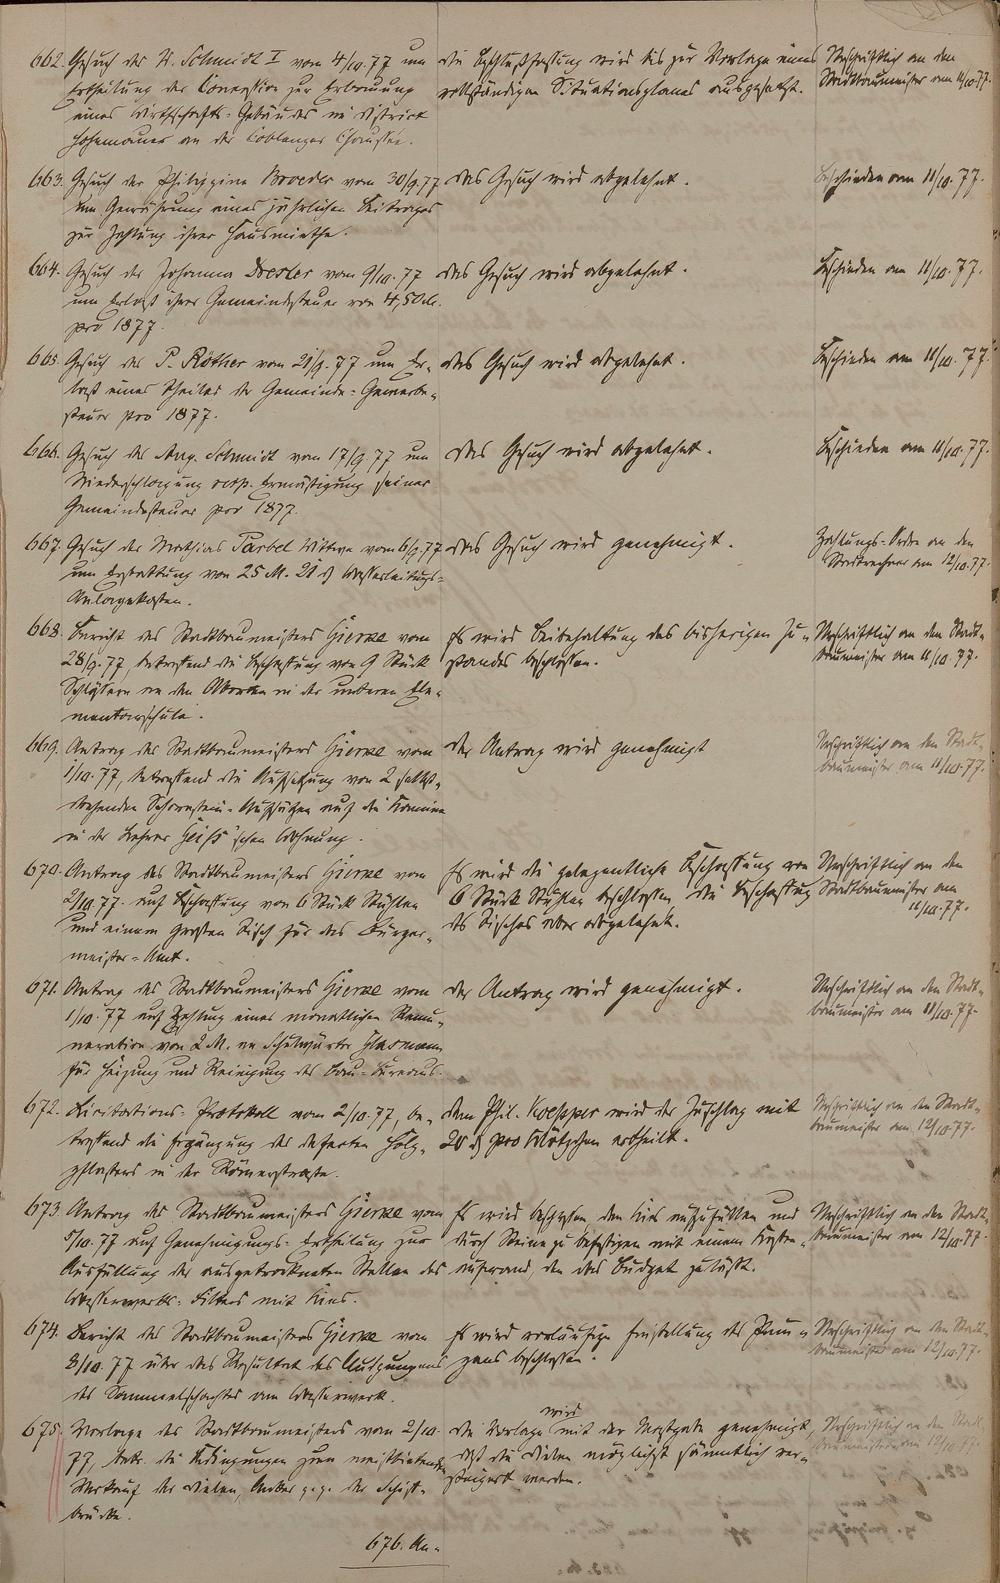 662. Gesuch des N. Schmidt I vom 4/10. 77 um
Ertheilung der Concession zur Erbauung
eines Wirthschafts-Gebäudes im District
Hohemauer an der Coblenzer Chaussée.
Die Beschlußfassung wird bis zur Vorlage eines
vollständigen Situationsplanes ausgesetzt.
Urschriftlich an den
Stadtbaumeister am 11/10. 77.
663. Gesuch der Philippine Broeder vom 30/9. 77
um Gewährung eines jährlichen Beitrages
zur Zahlung ihrer Hausmiethe.
Das Gesuch wird abgelehnt.
Beschieden am 11/10. 77.
664. Gesuch der Johanna Drexler vom 9/10. 77
um Erlaß ihrer Gemeindesteuer von 4,50 M.
pro 1877.
Das Gesuch wird abgelehnt.
Beschieden am 11/10. 77.
665. Gesuch des P. Röther vom 21/9. 77 um Er-
laß eines Theiles der Gemeinde-Gewerbe-
steuer pro 1877.
Das Gesuch wird abgelehnt.
Beschieden am 11/10. 77.
666. Gesuch des Aug. Schmidt vom 17/9 77 um
Niederschlagung resp. Ermäßigung seiner
Gemeindesteuer pro 1877.
Das Gesuch wird abgelehnt.
Beschieden am 11/10. 77.
667. Gesuch der Mathias Wittwe vom 6/9. 77
um Erstattung von 25 M. 21 ₰ Wasserleitungs-
Anlagekosten.
Das Gesuch wird genehmigt.
Zahlungs-Ordre an den
Stadtrechner am 12/10. 77.
668. Bericht des Stadtbaumeisters Gierke vom
28/9. 77, betreffend die Beschaffung von 9 Stück
Schlössern an den Aborten in der unteren Ele-
mentarschule.
Es wird Beibehaltung des bisherigen Zu-
standes beschlossen.
Urschriftlich an den Stadt-
baumeister am 11/10. 77.
669. Antrag des Stadtbaumeisters Gierke vom
1/10. 77, betreffend die Aufsetzung von 2 selbst-
drehenden Schornstein-Aufsätzen auf die Kamine
in der Lehrer Geiß'schen Wohnung.
Der Antrag wird genehmigt
Urschriftlich an den Stadt-
baumeister am 11/10. 77.
670. Antrag des Stadtbaumeisters Gierke vom
2/10. 77. auf Beschaffung von 6 Stück Stühlen
und einem großen Tisch für das Bürger-
meister-Amt.
Es wird die gelegentliche Beschaffung von
6 Stück Stühlen beschlossen, die Beschaffung
des Tisches aber abgelehnt.
Urschriftlich an den
Stadtbaumeister am
11/10. 77.
671. Antrag des Stadtbaumeisters Gierke vom
1/10. 77 auf Zahlung einer monatlichen Remu-
neration von 2 M. an Schulwärter Glasmann
für Heizung und Reinigung des Bau-Bureaus.
Der Antrag wird genehmigt.
Urschriftlich an den Stadt-
baumeister am 11/10. 77.
672. Licitations-Protokoll vom 2/10. 77, be-
treffend die Ergänzung des defecten Holz-
pflasters in der Römerstraße.
Dem Phil. Koepper wird der Zuschlag mit
20 ₰ pro Klötzchen ertheilt.
Urschriftlich an den Stadt-
baumeister am 12/10. 77.
673. Antrag des Stadtbaumeisters Gierke vom
5/10. 77 auf Genehmigungs-Ertheilung zur
Ausfüllung der ausgetrockneten Stellen des
Wasserwerks-Filters mit Kies.
Es wird beschlossen den Kies aufzufüllen und
durch Steine zu befestigen mit einem Kosten-
aufwand, den das Budget zuläßt.
Urschriftlich an den Stadt-
baumeister am 12/10. 77.
674. Bericht des Stadtbaumeisters Gierke vom
8/10. 77 über das Resultat des
des Sammelschachtes am Wasserwerk.
Es wird vorläufige Einstellung des Pum-
pens beschlossen.
Urschriftlich an den Stadt-
baumeister am 12/10. 77.
675. Vorlage des Stadtbaumeisters vom 2/10.
77, betr. die Bedingungen zum meistbietenden
Verkauf der Dielen, Anker p.p. der Schiff-
brücke.
Die Vorlage wird mit der Maßgabe genehmigt,
daß die Dielen möglichst sämmtlich ver-
steigert werden.
Urschriftlich an den Stadt-
baumeister am 12/10. 77.
676. An-